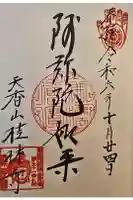 奉拝 令和六年十月廿四日
阿弥陀如来
天香山桂林寺